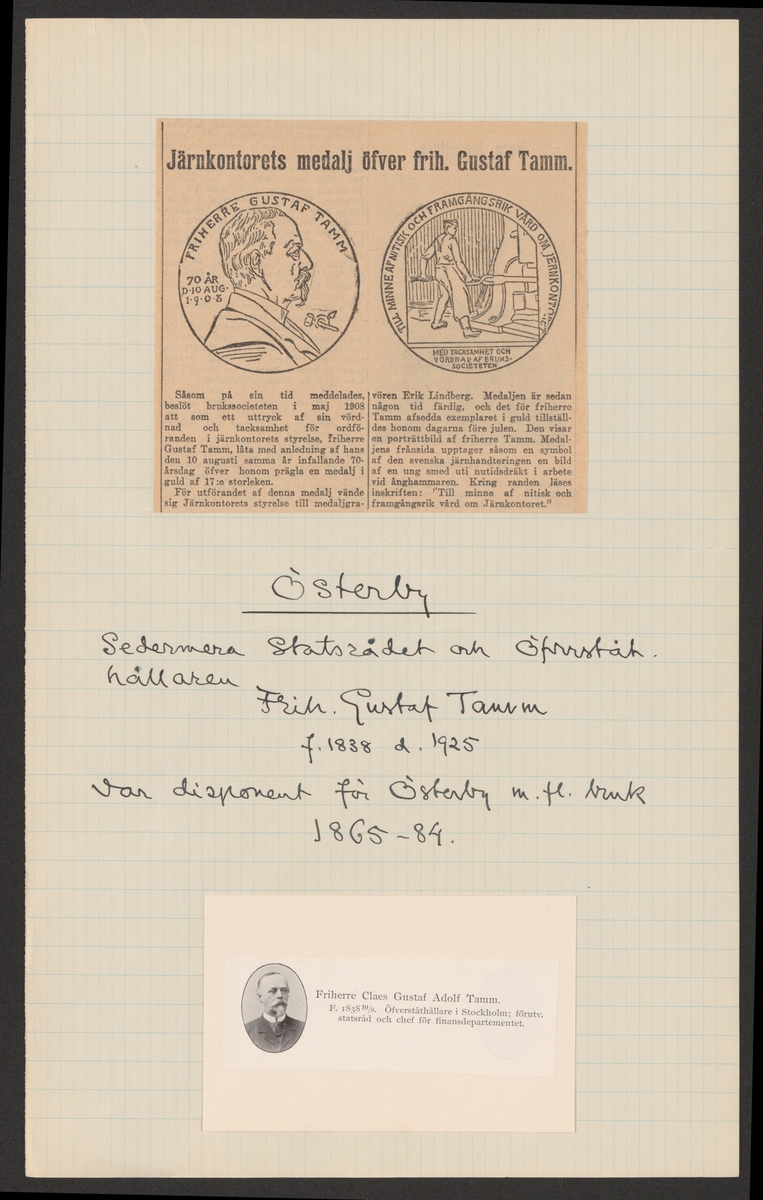 Järnkontorets medalj öfver frih. Gustaf Tamm.
FRIHERRE GUSTAF TAMM
70 ÅR
D·10 AUG·
1·9·0·8
TILL MINNE AF NITISK OCH FRAMGÅNGSRIK VÅRD OM JERNKONTORET
MED TACKSAMHET OCH
VÖRDNAD AF BRUKS-
SOCIETETEN
Såsom på sin tid meddelades,
beslöt brukssocieteten i maj 1908
att som ett uttryck af sin vörd-
nad och tacksamhet för ordfö-
randen i järnkontorets styrelse, friherre
Gustaf Tamm, låta med anledning af hans
den 10 augusti samma år infallande 70-
årsdag öfver honom prägla en medalj i
guld af 17:e storleken.
För utförandet af denna medalj vände
sig Järnkontorets styrelse till medaljgra-
vören Erik Lindberg. Medaljen är sedan
någon tid färdig, och det för friherre
Tamm afsedda exemplaret i guld tillställ-
des honom dagarna före julen. Den visar
en porträttbild af friherre Tamm. Medal-
jens frånsida upptager såsom en symbol
af den svenska järnhandteringen en bild
af en ung smed uti nutidsdräkt i arbete
vid ånghammaren. Kring randen läses
inskriften: "Till minne af nitisk och
framgångsrik vård om Järnkontoret."
Österby
Sedermera Statsrådet och Öfverståt.
hållaren
Frih. Gustaf Tamm
f. 1838 d. 1925
Var disponent för Österby m. fl. bruk
1865-84.
Friherre Claes Gustaf Adolf Tamm.
F. 1838 10/8. Öfverståthållare i Stockholm; förutv.
statsråd och chef för finansdepartementet.